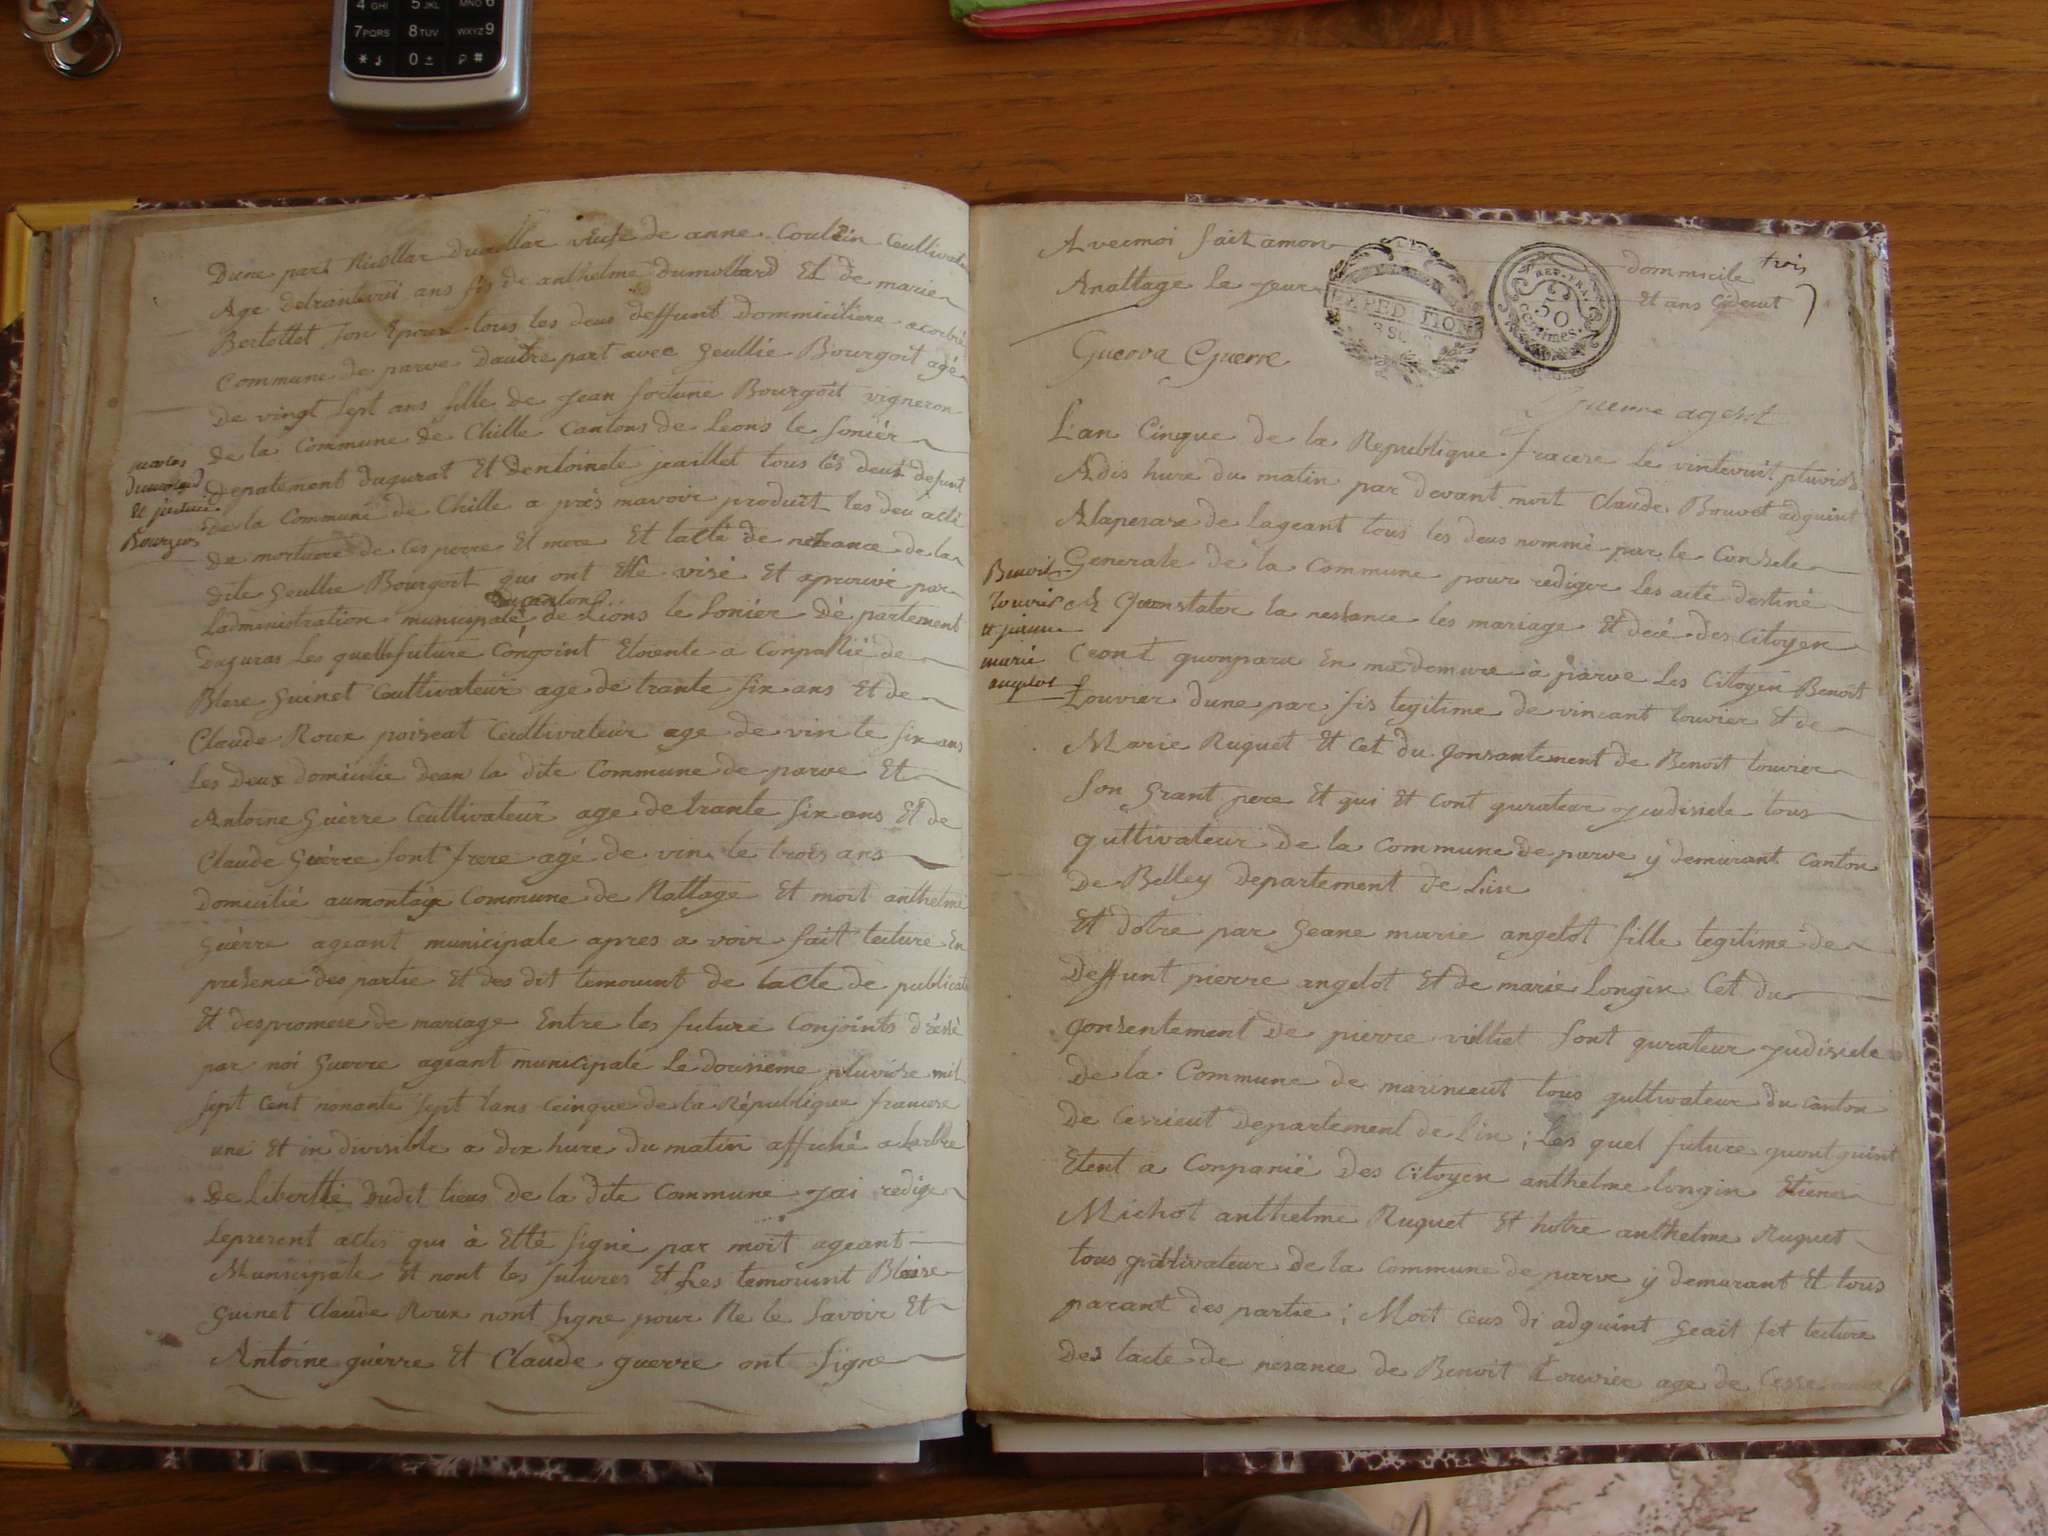 4 GHI 5 JKL MNO 6
7 PQRS 8 TUV WXYZ 9
* 0 #
Dune part Nicollar veufe de anne Coultivate
Age detrantevui ans fis de anthelme dumollard Et de marie
Bertollet Son Epoux tous les deus deffunt Dommicitiere acorbe
Commune de parve dautre part avec Geullie Bourgoit agé
De vingt Sept ans fille de jean fortune Bourgoit vigneron
De la Commune de Chille Cantons de Leons le Sonier
depatement dugurat Et dentoinete jeaillet tous les deus defunt
de la Commune de Chille a près mavoir produit les deu acte
De mortuere de ces perre Et mere Et lacte de nesance de la
dite Geullie Bourgoit qui ont Etté visé Et aprouvé par
du canton
Ladministration municipale de Lions le Sonier Dé partement
Duguras Les quelle future Congoint Etorente a Conpallié de
Blese Guinet Coultivateur age de trante Six ans Et de
Claude Roux poiseat Ceultivateur age de vin te Six ans
Les Deux domicilie dean la dite Commune de parve Et
Antoine Guèrre Ceultivateur age de trante Six ans Et de
Claude Guèrre Sont frere agé de vin te trois ans
Domicilié aumontage Commune de Nattage Et moit anthelme
Guèrre ageant municipale apres a voir fait lecture En
presence des partie Et des dit temouint de lacte de publicat
Et despromese de mariage Entre les future Conjoints
par noi Guerre ageant municipale Le dousieme pluviose mil
Sept Cent nonante Sept lans Ceinque de la République francese
une Et in divisible a dix hure du matin affiché a larbre
De Libertté Dudit lieus de la dite Commune jai redige
Leprerent actes qui à Etté Signé par moit ageant
Municipale Et nont les futures Et Les temouint Blaise
Guinet Claude Roux nont Signe pour Ne le Savoir Et
Antoine guèrre Et Claude guerre ont Signe
Bourgois
Avecmoi fait amon
Anattage le jeur
dommicile
trois
EXPEDITION
REP. FRA.
50
centimes.
Guerre
Guerre agent
L'an Cinque de la Republique fracere Le vintevuit pluviose
Adis hure du matin par devant moit Claude Bouvet adguint
Alapesare de Lageant tous les deus nommé par le Consele
Generale de la Commune pour rediger Les acte destiné
a Quonstater la nessance les mariage Et décé des Citoyen
quonparu En ma demure à parve Les Citoyen Benoit
Louvrier Dune par fis legitime de vincant Louvier Et de
Marie Ruquet Et Cet du Qonsantement de Benoit Louvier
Son Grant pere Et qui Et Cont qurateur judisiele tous
qultivateur de la Commune de parve y demurant Canton
De Belley departement de Lin
Et dotre par Geane marie angelot fille legitime de
Deffunt pierre angelot Et de marie Longin Cet du
Qonsentement De pierre villiet Sont qurateur judisiele
De la Commune de marinieut tous qultivateur du Canton
De Cesrieut Departement de Lin ; Les quel future quontguint
Etent a Conpanië Des Citoyen anthelme longin
Michot anthelme Ruquet Et hotre anthelme Ruquet
tous qultivateur De la Commune de parve y demurant Et tous
parant des partie ; Moit Ceus di adguint Geait fet lecture
Des lacte de nesance de Benoit Louvier age de
Benoit
Louvier
et jeanne
marie
angelot